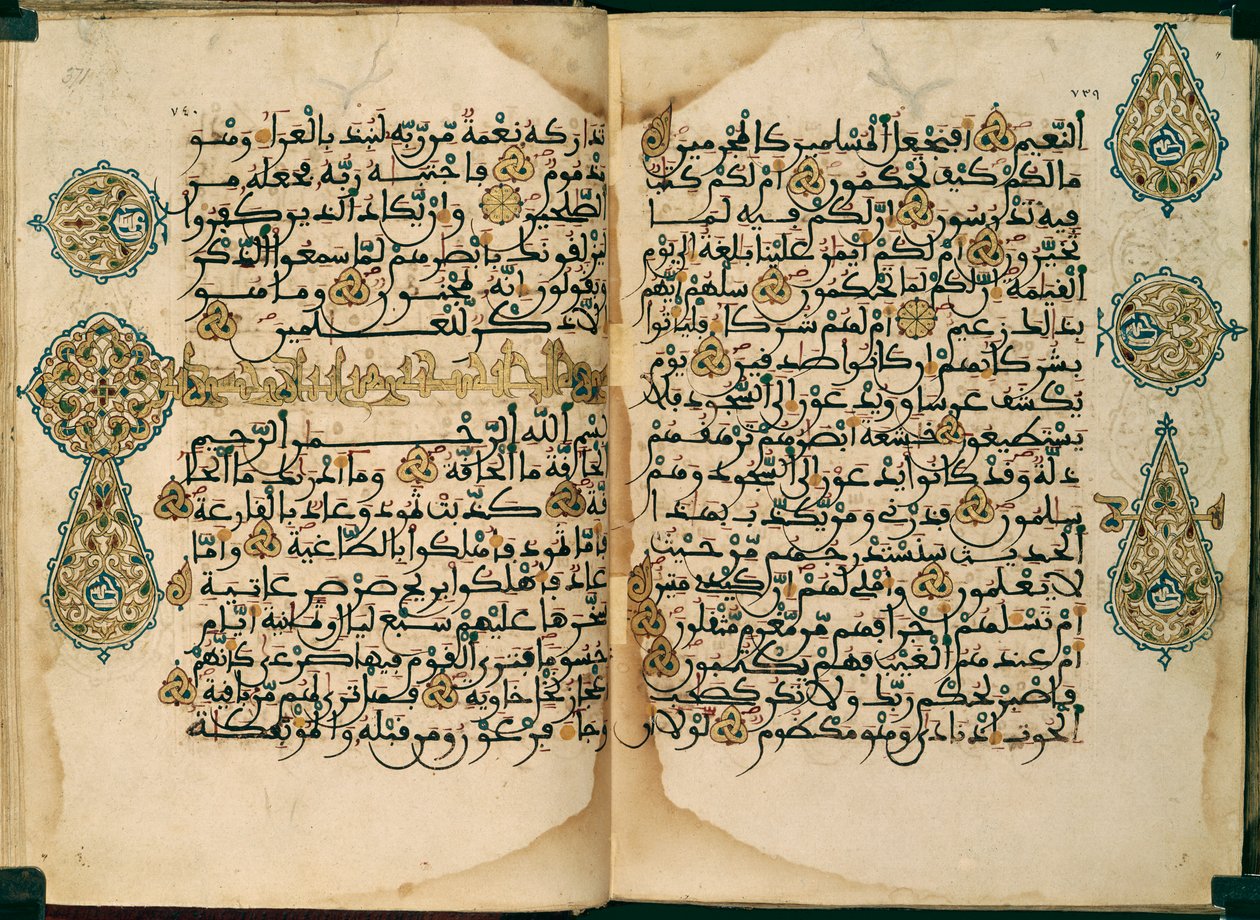 ٧٣٩
النعيم افنجعل المسلمين كالمجرمين
ما لكم كيف تحكمون ام لكم كتب
فيه تدرسون ان لكم فيه لما
تخيرون ام لكم ايمن علينا بلغة الى يوم
القيمة ان لكم لما تحكمون سلهم ايهم
بذلك زعيم ام لهم شركاء فلياتوا
بشركائهم ان كانوا صدقين يوم
يكشف عن ساق ويدعون الى السجود فلا
يستطيعون خشعة ابصرهم ترهقهم
ذلة وقد كانوا يدعون الى السجود وهم
سلمون فذرني ومن يكذب بهذا
الحديث سنستدرجهم من حيث
لا يعلمون واملي لهم ان كيدي متين
ام تسلهم اجرا فهم من مغرم مثقلون
ام عندهم الغيب فهم يكتبون
فاصبر لحكم ربك ولا تكن كصحب
الحوت اذ نادى وهو مكظوم لولا ان
371
٧٤٠
تداركه نعمة من ربه لنبذ بالعراء وهو
مذموم فاجتبه ربه فجعله من
الصلحين وان يكاد الذين كفروا
ليزلقونك بابصرهم لما سمعوا الذكر
ويقولون انه لمجنون وما هو
الا ذكر للعلمين
بسم الله الرحمن الرحيم
الحاقة ما الحاقة وما ادريك ما الحا
قة كذبت ثمود وعاد بالقارعة
فاما ثمود فاهلكوا بالطاغية واما
عاد فاهلكوا بريح صرصر عاتية
سخرها عليهم سبع ليال وثمنية ايام
حسوما فترى القوم فيها صرعى كانهم
اعجاز نخل خاوية فهل ترى لهم من باقية
وجاء فرعون ومن قبله والموتفكت